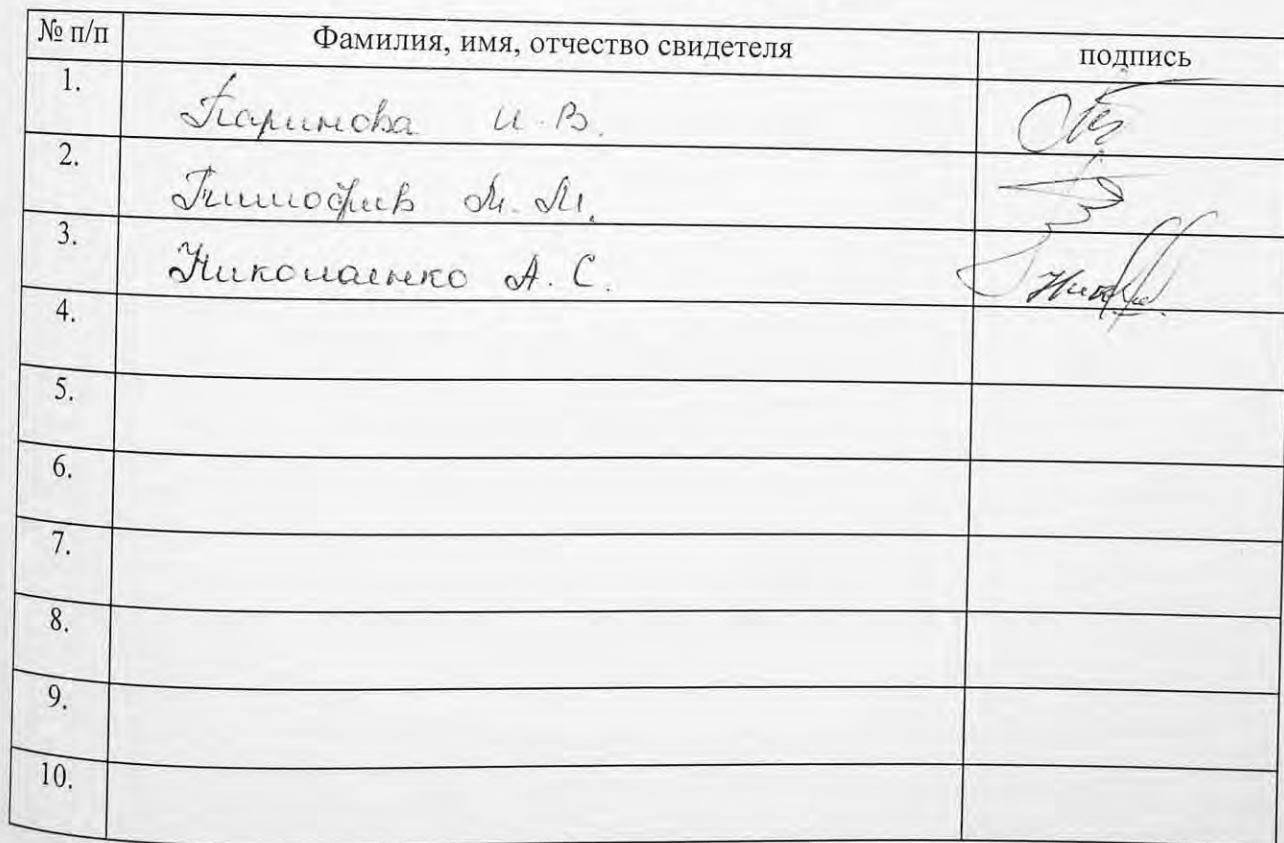 № п/п Фамилия, имя, отчество свидетеля подпись
1. Паринова И. В.
2. Тимофиив М. М.
3. Николаенко А. С.
4.
5.
6.
7.
8.
9.
10.